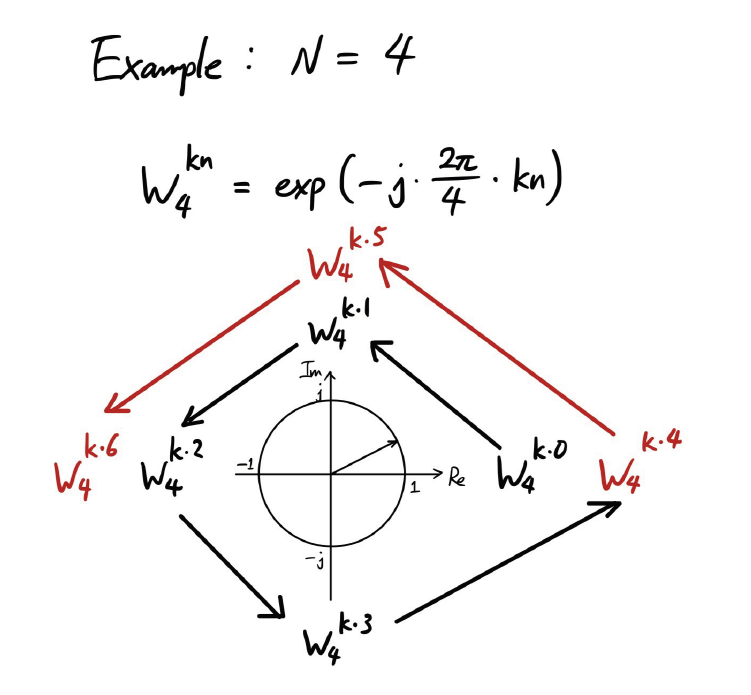 Example : N = 4
W₄^{kn} = exp(-j · 2π/4 · kn)
W₄^{k·5}
W₄^{k·1}
Im
j
W₄^{k·6} W₄^{k·2} -1 1 Re W₄^{k·0} W₄^{k·4}
-j
W₄^{k·3}